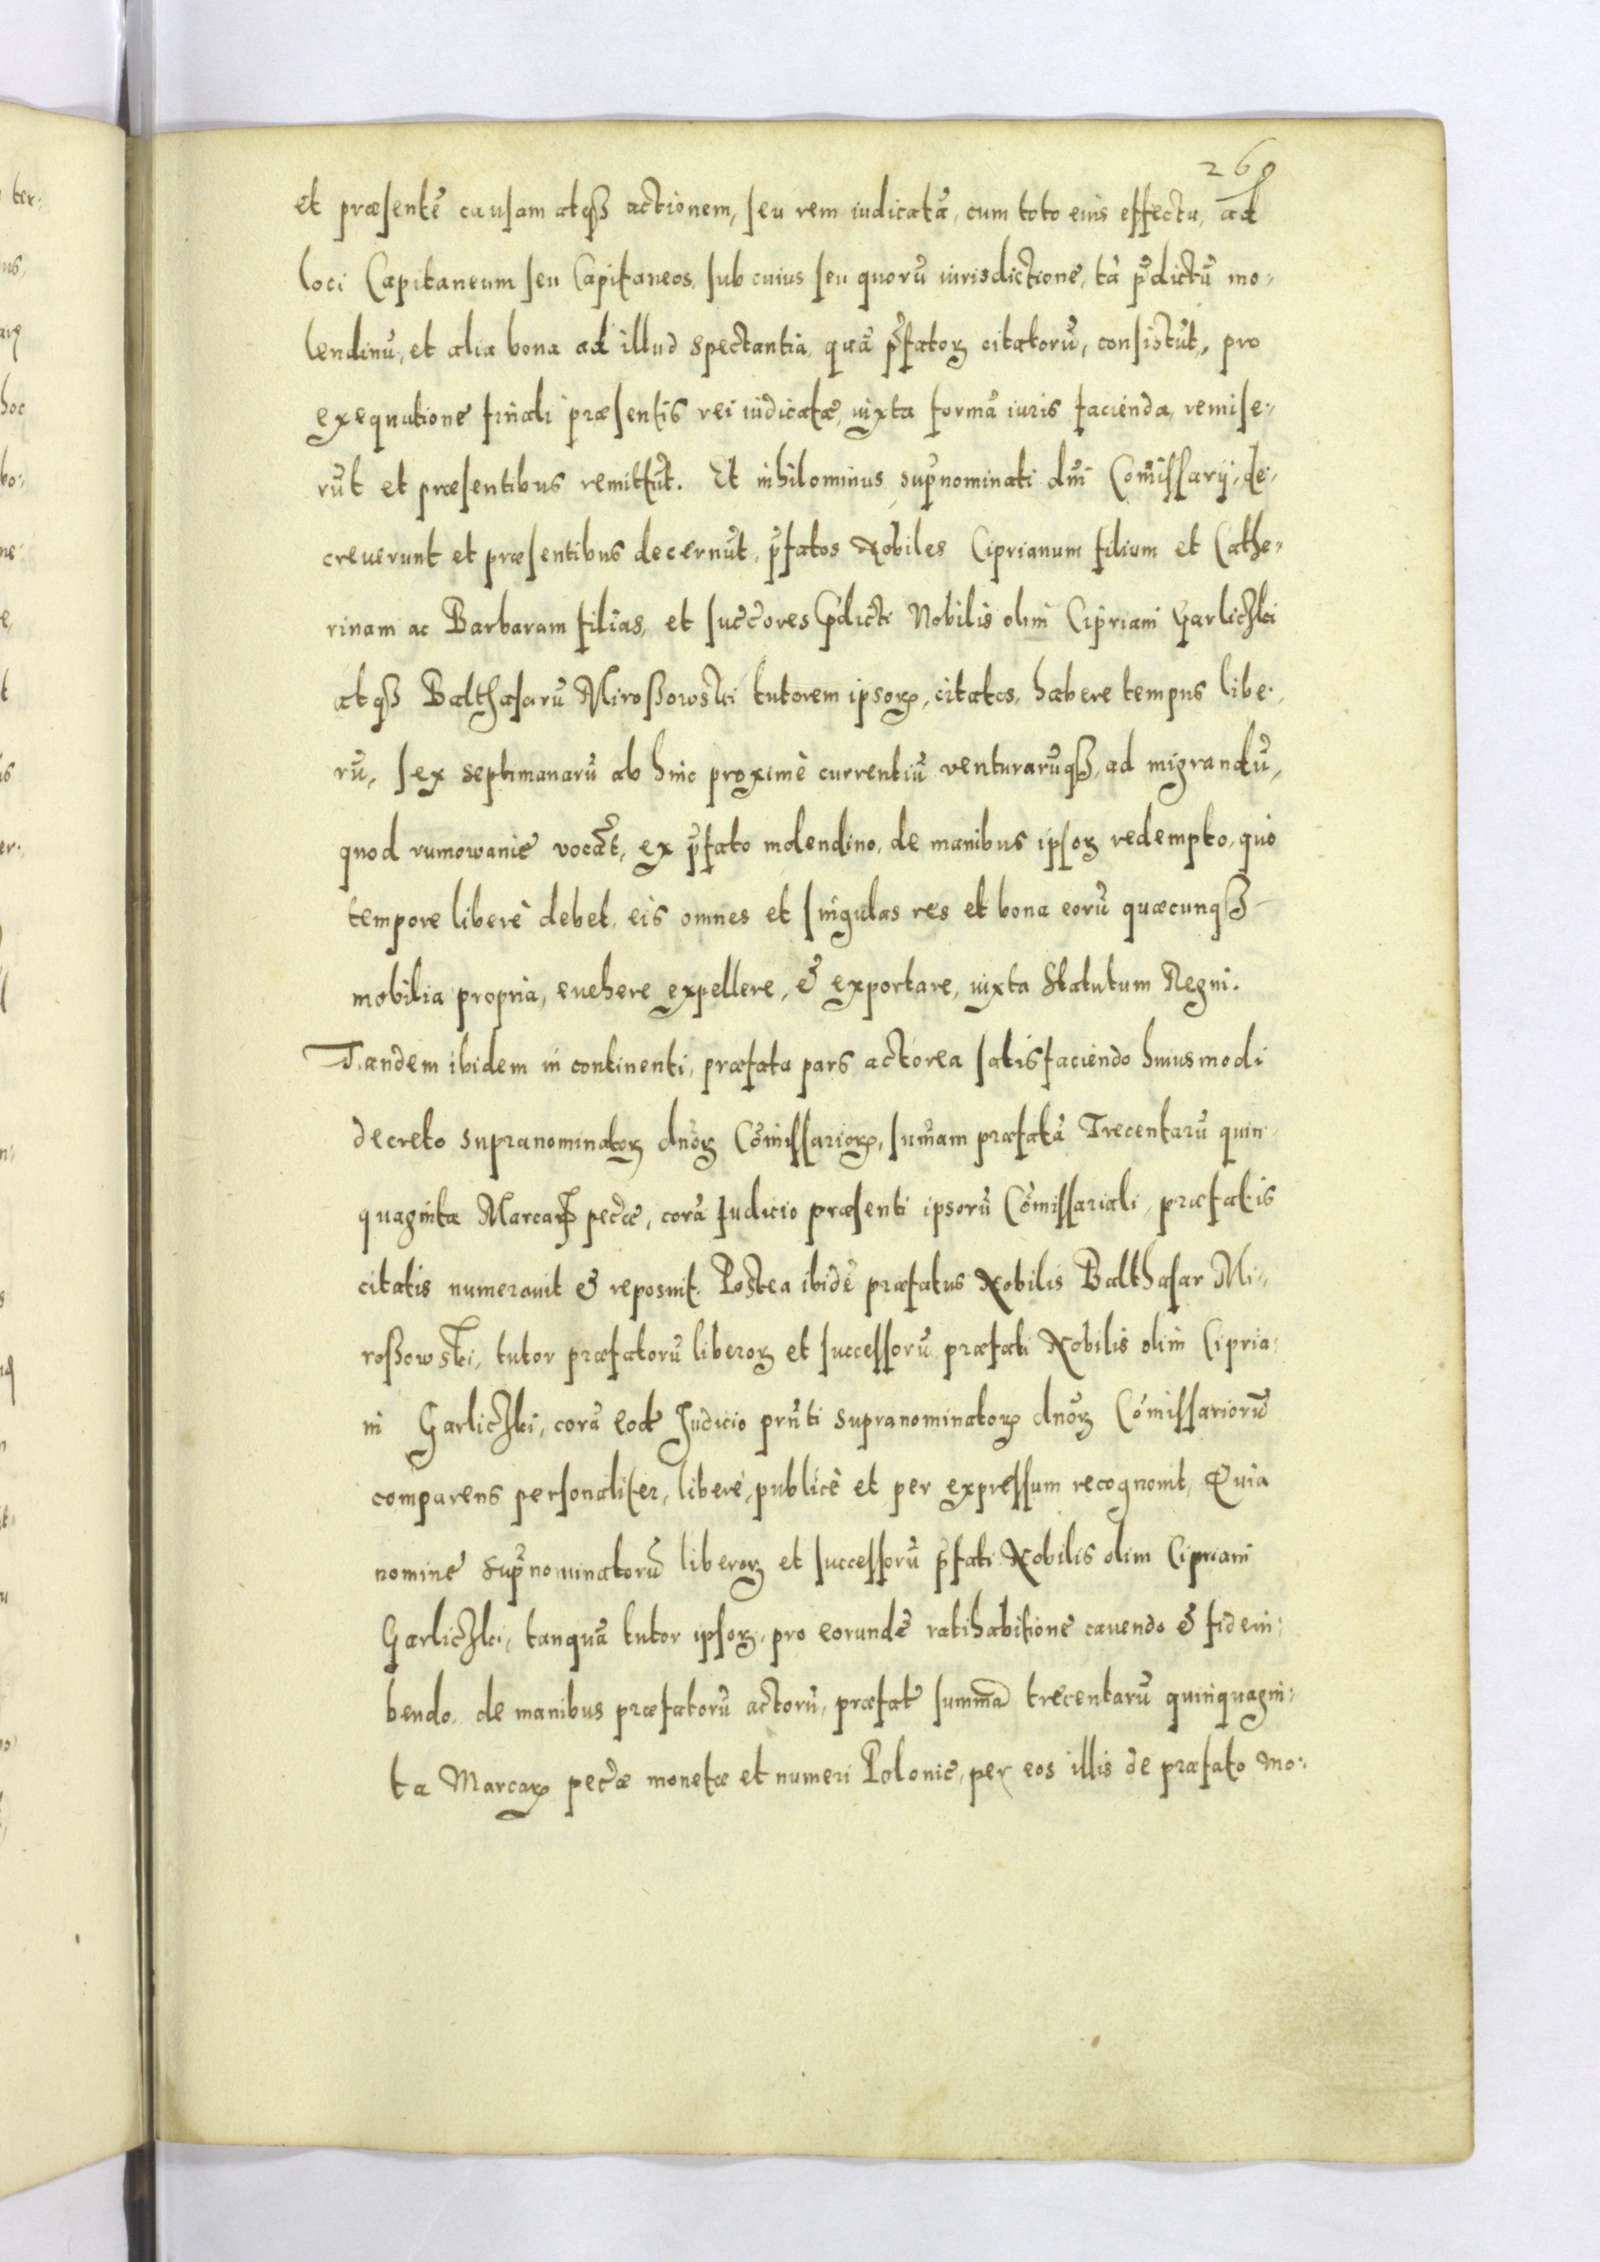 260
et præsentē causam atqß actionem, seu rem iudicatā, cum toto eius effectu, ad
loci Capitaneum seu Capitaneos, sub cuius seu quorū iurisdictione, tā p̄dictū mo-
lendinū, et alia bona ad illud spectantia, quā p̄fatoꝝ citatorū, consistūt, pro
exequutione finali præsentis rei iudicatæ, iuxta formā iuris facienda, remise-
rūt et præsentibus remittūt. Et nihilominus sup̄nominati dn̄i Com̄issarij, de-
creuerunt et præsentibus decernūt, p̄fatos Nobiles Ciprianum filium et Cathe-
rinam ac Barbaram filias, et succ̄ores p̄dicti Nobilis olim Cipriani Garliczki
atqß Balthasarū Miroßowski tutorem ipsoꝝ, citatos, habere tempus libe-
rū, sex septimanarū ab hinc proximè currentiū venturarūqß, ad migrandū,
quod rumowanie vocāt, ex p̄fato molendino, de manibus ipsoꝝ redempto, quo
tempore liberè debet, eis omnes et singulas res et bona eorū quæcunqß
mobilia propria, euehere expellere, & exportare, iuxta Statutum Regni.
Tandem ibidem in continenti, præfata pars actorea satisfaciendo huiusmodi
decreto supranominatoꝝ dn̄oꝝ Com̄issarioꝝ, sum̄am præfatā Trecentarū quin-
quaginta Marcaꝝ pec̄æ, corā Iudicio præsenti ipsorū Com̄issariali, præfatis
citatis numerauit & reposuit. Postea ibidē præfatus Nobilis Balthasar Mi-
roßowski, tutor præfatorū liberoꝝ et successorū præfati Nobilis olim Cipria-
ni Garliczki, corā eodē Iudicio prn̄ti supranominatoꝝ dn̄oꝝ Com̄issariorū
comparens personaliter, liberè, publicè et per expressum recognouit, Quia
nomine sup̄nominatorū liberoꝝ et successorū p̄fati Nobilis olim Cipriani
Garliczki, tanquā tutor ipsoꝝ, pro eorundē ratihabitione cauendo & fideiu-
bendo, de manibus præfatorū actorū, præfatā summā trecentarū quinquagin-
ta Marcaꝝ pec̄æ monetæ et numeri Polonic̄, per eos illis de præfato mo-